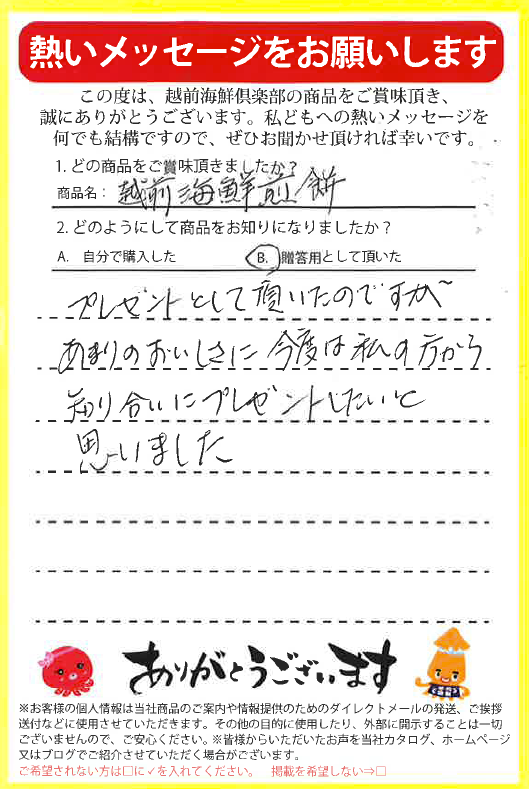 熱いメッセージをお願いします
この度は、越前海鮮倶楽部の商品をご賞味頂き、
誠にありがとうございます。私どもへの熱いメッセージを
何でも結構ですので、ぜひお聞かせ頂ければ幸いです。
1. どの商品をご賞味頂きましたか?
商品名： 越前海鮮煎餅
2. どのようにして商品をお知りになりましたか？
A. 自分で購入した B. 贈答用として頂いた
プレゼントとして頂いたのですが
あまりのおいしさに今度は私の方から
知り合いにプレゼントしたいと
思いました
ありがとうございます
※お客様の個人情報は当社商品のご案内や情報提供のためのダイレクトメールの発送、ご挨拶
送付などに使用させていただきます。その他の目的に使用したり、外部に開示することは一切
ございませんので、ご安心ください。※皆様からいただいたお声を当社カタログ、ホームページ
又はブログでご紹介させていただく場合がございます。
ご希望されない方は□に✓を入れてください。 掲載を希望しない⇒□